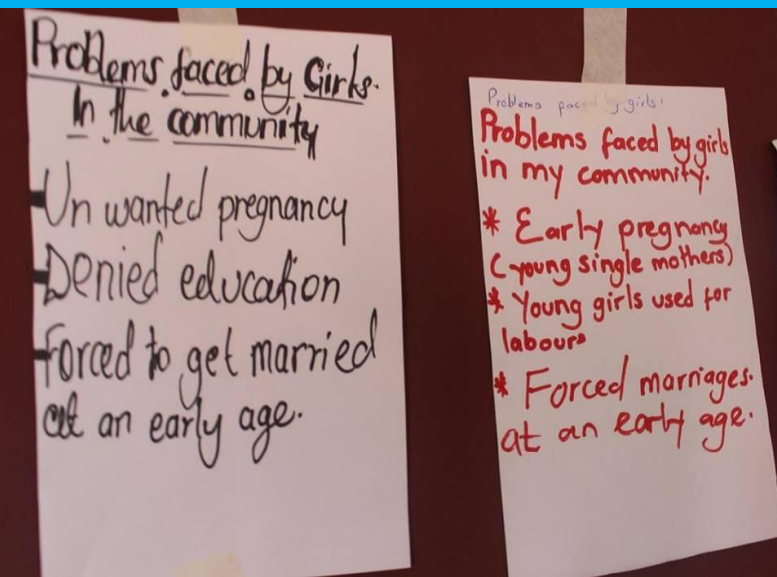 Problems faced by Girls.
In the community
- Un wanted pregnancy
- Denied education
- Forced to get married
at an early age.
Problems faced by girls.
Problems faced by girls
in my community.
* Early pregnancy
(young single mothers)
* Young girls used for
labours
* Forced marriages.
at an early age.